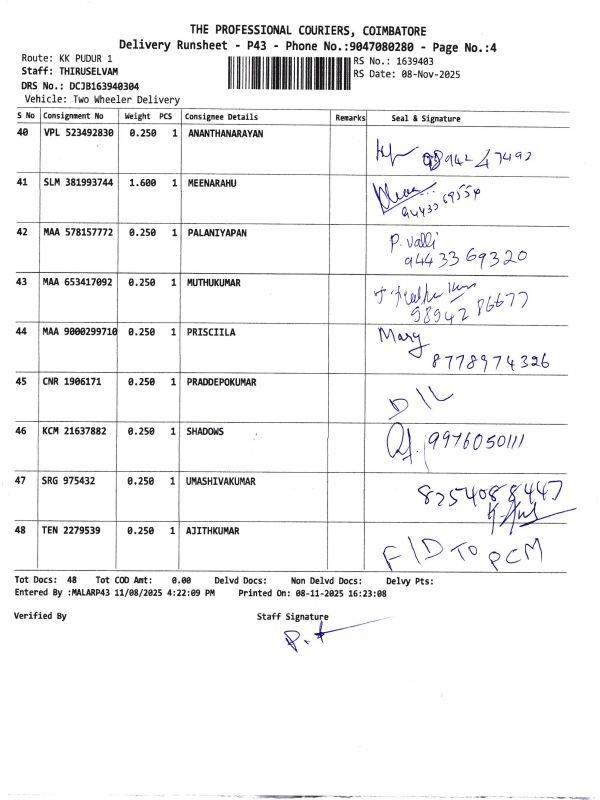 THE PROFESSIONAL COURIERS, COIMBATORE
Delivery Runsheet - P43 - Phone No.:9047080280 - Page No.:4
Route: KK PUDUR 1
Staff: THIRUSELVAM
DRS No.: DCJB163940304
Vehicle: Two Wheeler Delivery
RS No.: 1639403
RS Date: 08-Nov-2025
S No Consignment No Weight PCS Consignee Details Remarks Seal & Signature
40 VPL 523492830 0.250 1 ANANTHANARAYAN
41 SLM 381993744 1.600 1 MEENARAHU
94433 69554
42 MAA 578157772 0.250 1 PALANIYAPAN
P. Valli
94433 69320
43 MAA 653417092 0.250 1 MUTHUKUMAR
98942 86677
44 MAA 9000299710 0.250 1 PRISCIILA
Mary
8778974326
45 CNR 1906171 0.250 1 PRADDEPOKUMAR
D/L
46 KCM 21637882 0.250 1 SHADOWS
9976050111
47 SRG 975432 0.250 1 UMASHIVAKUMAR
8254088447
48 TEN 2279539 0.250 1 AJITHKUMAR
F/D TO PCM
Tot Docs: 48 Tot COD Amt: 0.00 Delvd Docs: Non Delvd Docs: Delvy Pts:
Entered By :MALARP43 11/08/2025 4:22:09 PM Printed On: 08-11-2025 16:23:08
Verified By Staff Signature